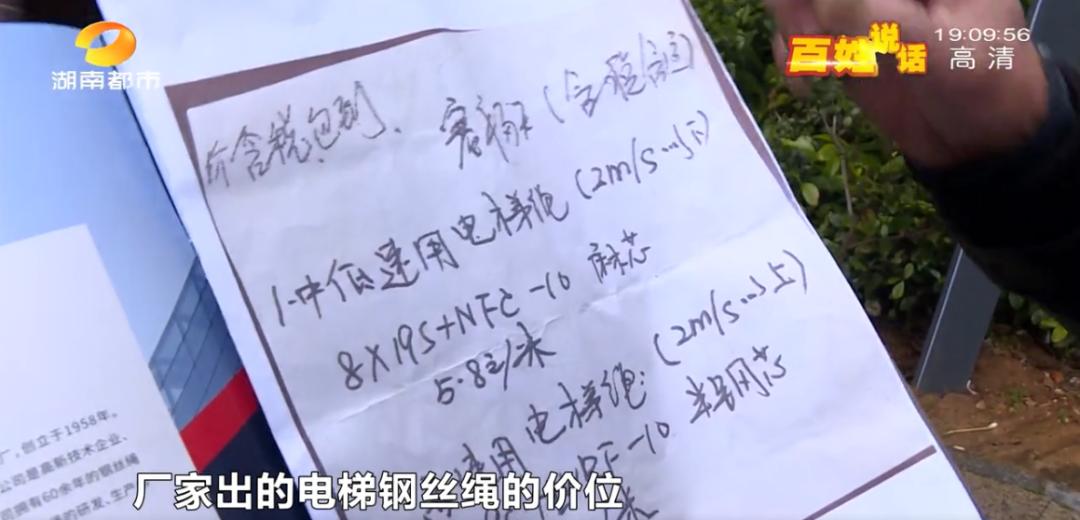 湖南都市
百姓说话
19:09:56
高清
含税包到
1.中低速用电梯绳(2m/s以下)
8×19S+NFC-10 麻芯
5.8元/米
速用电梯绳:(2m/s以上)
-10
厂,创立于1958年。
公司是高新技术企业、
司拥有60余年的钢丝绳
的研发、生产
厂家出的电梯钢丝绳的价位